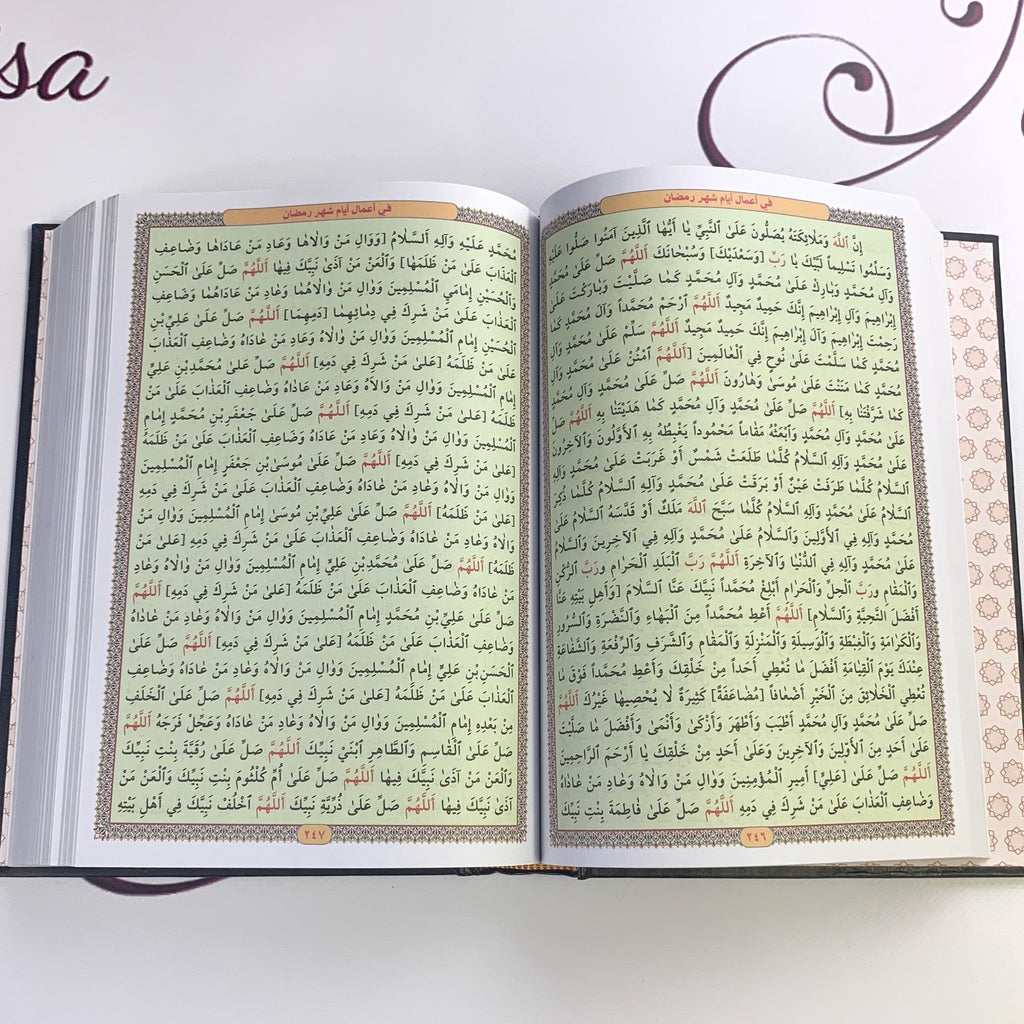 isa
في أعمال أيام شهر رمضان
إِنَّ ٱللّٰهَ وَمَلَائِكَتَهُ يُصَلُّونَ عَلَى ٱلنَّبِيِّ يَا أَيُّهَا ٱلَّذِينَ آمَنُوا صَلُّوا عَلَيْهِ
وَسَلِّمُوا تَسْلِيماً لَبَّيْكَ يَا رَبِّ [وَسَعْدَيْكَ] وَسُبْحَانَكَ ٱللَّهُمَّ صَلِّ عَلَىٰ مُحَمَّدٍ
وَآلِ مُحَمَّدٍ وَبَارِكْ عَلَىٰ مُحَمَّدٍ وَآلِ مُحَمَّدٍ كَمَا صَلَّيْتَ وَبَارَكْتَ عَلَىٰ
إِبْرَاهِيمَ وَآلِ إِبْرَاهِيمَ إِنَّكَ حَمِيدٌ مَجِيدٌ ٱللَّهُمَّ ٱرْحَمْ مُحَمَّداً وَآلَ مُحَمَّدٍ كَمَا
رَحِمْتَ إِبْرَاهِيمَ وَآلَ إِبْرَاهِيمَ إِنَّكَ حَمِيدٌ مَجِيدٌ ٱللَّهُمَّ سَلِّمْ عَلَىٰ مُحَمَّدٍ وَآلِ
مُحَمَّدٍ كَمَا سَلَّمْتَ عَلَىٰ نُوحٍ فِي ٱلْعَالَمِينَ [ٱللَّهُمَّ ٱمْنُنْ عَلَىٰ مُحَمَّدٍ وَآلِ
مُحَمَّدٍ كَمَا مَنَنْتَ عَلَىٰ مُوسَىٰ وَهَارُونَ ٱللَّهُمَّ صَلِّ عَلَىٰ مُحَمَّدٍ وَآلِ مُحَمَّدٍ
كَمَا شَرَّفْتَنَا بِهِ] ٱللَّهُمَّ صَلِّ عَلَىٰ مُحَمَّدٍ وَآلِ مُحَمَّدٍ كَمَا هَدَيْتَنَا بِهِ ٱللَّهُمَّ صَلِّ
عَلَىٰ مُحَمَّدٍ وَآلِ مُحَمَّدٍ وَٱبْعَثْهُ مَقَاماً مَحْمُوداً يَغْبِطُهُ بِهِ ٱلْأَوَّلُونَ وَٱلْآخِرُونَ
عَلَىٰ مُحَمَّدٍ وَآلِهِ ٱلسَّلَامُ كُلَّمَا طَلَعَتْ شَمْسٌ أَوْ غَرَبَتْ عَلَىٰ مُحَمَّدٍ وَآلِهِ
ٱلسَّلَامُ كُلَّمَا طَرَفَتْ عَيْنٌ أَوْ بَرَقَتْ عَلَىٰ مُحَمَّدٍ وَآلِهِ ٱلسَّلَامُ كُلَّمَا ذُكِرَ
ٱلسَّلَامُ عَلَىٰ مُحَمَّدٍ وَآلِهِ ٱلسَّلَامُ كُلَّمَا سَبَّحَ ٱللّٰهَ مَلَكٌ أَوْ قَدَّسَهُ ٱلسَّلَامُ عَلَىٰ
مُحَمَّدٍ وَآلِهِ فِي ٱلْأَوَّلِينَ وَٱلسَّلَامُ عَلَىٰ مُحَمَّدٍ وَآلِهِ فِي ٱلْآخِرِينَ وَٱلسَّلَامُ
عَلَىٰ مُحَمَّدٍ وَآلِهِ فِي ٱلدُّنْيَا وَٱلْآخِرَةِ ٱللَّهُمَّ رَبَّ ٱلْبَلَدِ ٱلْحَرَامِ ورَبَّ ٱلرُّكْنِ
وَٱلْمَقَامِ ورَبَّ ٱلْحِلِّ وَٱلْحَرَامِ أَبْلِغْ مُحَمَّداً نَبِيَّكَ عَنَّا ٱلسَّلَامَ [وَأَهلَ بَيْتِهِ عَنَّا
أَفْضَلَ ٱلتَّحِيَّةِ وَٱلسَّلَامِ] ٱللَّهُمَّ أَعْطِ مُحَمَّداً مِنَ ٱلْبَهَاءِ وَٱلنَّضْرَةِ وَٱلسُّرُورِ
وَٱلْكَرَامَةِ وَٱلْغِبْطَةِ وَٱلْوَسِيلَةِ وَٱلْمَنْزِلَةِ وَٱلْمَقَامِ وَٱلشَّرَفِ وَٱلرِّفْعَةِ وَٱلشَّفَاعَةِ
عِنْدَكَ يَوْمَ ٱلْقِيَامَةِ أَفْضَلَ مَا تُعْطِي أَحَداً مِنْ خَلْقِكَ وَأَعْطِ مُحَمَّداً فَوْقَ مَا
تُعْطِي ٱلْخَلَائِقَ مِنَ ٱلْخَيْرِ أَضْعَافاً [مُضَاعَفَةً] كَثِيرَةً لَا يُحْصِيهَا غَيْرُكَ ٱللَّهُمَّ
صَلِّ عَلَىٰ مُحَمَّدٍ وَآلِ مُحَمَّدٍ أَطْيَبَ وَأَطْهَرَ وَأَزْكَىٰ وَأَنْمَىٰ وَأَفْضَلَ مَا صَلَّيْتَ
عَلَىٰ أَحَدٍ مِنَ ٱلْأَوَّلِينَ وَٱلْآخِرِينَ وَعَلَىٰ أَحَدٍ مِنْ خَلْقِكَ يَا أَرْحَمَ ٱلرَّاحِمِينَ
ٱللَّهُمَّ صَلِّ عَلَىٰ [عَلِيٍّ] أَمِيرِ ٱلْمُؤْمِنِينَ وَوَالِ مَنْ وَالَاهُ وَعَادِ مَنْ عَادَاهُ
وَضَاعِفِ ٱلْعَذَابَ عَلَىٰ مَنْ شَرِكَ فِي دَمِهِ ٱللَّهُمَّ صَلِّ عَلَىٰ فَاطِمَةَ بِنْتِ نَبِيِّكَ
٢٤٦
في أعمال أيام شهر رمضان
مُحَمَّدٍ عَلَيْهِ وَآلِهِ ٱلسَّلَامُ [وَوَالِ مَنْ وَالَاهَا وَعَادِ مَنْ عَادَاهَا وَضَاعِفِ
ٱلْعَذَابَ عَلَىٰ مَنْ ظَلَمَهَا] وَٱلْعَنْ مَنْ آذَىٰ نَبِيَّكَ فِيهَا ٱللَّهُمَّ صَلِّ عَلَىٰ ٱلْحَسَنِ
وَٱلْحُسَيْنِ إِمَامَيِ ٱلْمُسْلِمِينَ وَوَالِ مَنْ وَالَاهُمَا وَعَادِ مَنْ عَادَاهُمَا وَضَاعِفِ
ٱلْعَذَابَ عَلَىٰ مَنْ شَرِكَ فِي دِمَائِهِمَا [دَمِهِمَا] ٱللَّهُمَّ صَلِّ عَلَىٰ عَلِيِّ بْنِ
ٱلْحُسَيْنِ إِمَامِ ٱلْمُسْلِمِينَ وَوَالِ مَنْ وَالَاهُ وَعَادِ مَنْ عَادَاهُ وَضَاعِفِ ٱلْعَذَابَ
عَلَىٰ مَنْ ظَلَمَهُ [عَلىٰ مَنْ شَرِكَ فِي دَمِهِ] ٱللَّهُمَّ صَلِّ عَلىٰ مُحَمَّدِ بْنِ عَلِيٍّ
إِمَامِ ٱلْمُسْلِمِينَ وَوَالِ مَنْ وَالَاهُ وَعَادِ مَنْ عَادَاهُ وَضَاعِفِ ٱلْعَذَابَ عَلَىٰ مَنْ
ظَلَمَهُ [عَلىٰ مَنْ شَرِكَ فِي دَمِهِ] ٱللَّهُمَّ صَلِّ عَلَىٰ جَعْفَرِ بْنِ مُحَمَّدٍ إِمَامِ
ٱلْمُسْلِمِينَ وَوَالِ مَنْ وَالَاهُ وَعَادِ مَنْ عَادَاهُ وَضَاعِفِ ٱلْعَذَابَ عَلَىٰ مَنْ ظَلَمَهُ
[عَلىٰ مَنْ شَرِكَ فِي دَمِهِ] ٱللَّهُمَّ صَلِّ عَلَىٰ مُوسَىٰ بْنِ جَعْفَرٍ إِمَامِ ٱلْمُسْلِمِينَ
وَوَالِ مَنْ وَالَاهُ وَعَادِ مَنْ عَادَاهُ وَضَاعِفِ ٱلْعَذَابَ عَلَىٰ مَنْ شَرِكَ فِي دَمِهِ
[عَلىٰ مَنْ ظَلَمَهُ] ٱللَّهُمَّ صَلِّ عَلَىٰ عَلِيِّ بْنِ مُوسَىٰ إِمَامِ ٱلْمُسْلِمِينَ وَوَالِ مَنْ
وَالَاهُ وَعَادِ مَنْ عَادَاهُ وَضَاعِفِ ٱلْعَذَابَ عَلَىٰ مَنْ شَرِكَ فِي دَمِهِ [عَلىٰ مَنْ
ظَلَمَهُ] ٱللَّهُمَّ صَلِّ عَلَىٰ مُحَمَّدِ بْنِ عَلِيٍّ إِمَامِ ٱلْمُسْلِمِينَ وَوَالِ مَنْ وَالَاهُ وَعَادِ
مَنْ عَادَاهُ وَضَاعِفِ ٱلْعَذَابَ عَلَىٰ مَنْ ظَلَمَهُ [عَلىٰ مَنْ شَرِكَ فِي دَمِهِ] ٱللَّهُمَّ
صَلِّ عَلَىٰ عَلِيِّ بْنِ مُحَمَّدٍ إِمَامِ ٱلْمُسْلِمِينَ وَوَالِ مَنْ وَالَاهُ وَعَادِ مَنْ عَادَاهُ
وَضَاعِفِ ٱلْعَذَابَ عَلَىٰ مَنْ ظَلَمَهُ [عَلىٰ مَنْ شَرِكَ فِي دَمِهِ] ٱللَّهُمَّ صَلِّ عَلَىٰ
ٱلْحَسَنِ بْنِ عَلِيٍّ إِمَامِ ٱلْمُسْلِمِينَ وَوَالِ مَنْ وَالَاهُ وَعَادِ مَنْ عَادَاهُ وَضَاعِفِ
ٱلْعَذَابَ عَلَىٰ مَنْ ظَلَمَهُ [عَلىٰ مَنْ شَرِكَ فِي دَمِهِ] ٱللَّهُمَّ صَلِّ عَلَىٰ ٱلْخَلَفِ
مِنْ بَعْدِهِ إِمَامِ ٱلْمُسْلِمِينَ وَوَالِ مَنْ وَالَاهُ وَعَادِ مَنْ عَادَاهُ وَعَجِّلْ فَرَجَهُ ٱللَّهُمَّ
صَلِّ عَلَىٰ ٱلْقَاسِمِ وَٱلطَّاهِرِ ٱبْنَيْ نَبِيِّكَ ٱللَّهُمَّ صَلِّ عَلَىٰ رُقَيَّةَ بِنْتِ نَبِيِّكَ
وَٱلْعَنْ مَنْ آذَىٰ نَبِيَّكَ فِيهَا ٱللَّهُمَّ صَلِّ عَلَىٰ أُمِّ كُلْثُومَ بِنْتِ نَبِيِّكَ وَٱلْعَنْ مَنْ
آذَىٰ نَبِيَّكَ فِيهَا ٱللَّهُمَّ صَلِّ عَلَىٰ ذُرِّيَّةِ نَبِيِّكَ ٱللَّهُمَّ ٱخْلُفْ نَبِيَّكَ فِي أَهْلِ بَيْتِهِ
٢٤٧